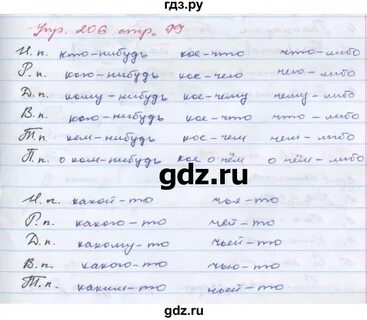 гдз.ру
Упр. 206 стр. 99
И.п. кто-нибудь кое-что что-либо
Р.п. кого-нибудь кое-чего чего-либо
Д.п. кому-нибудь кое-чему чему-либо
В.п. кого-нибудь кое-что что-либо
Т.п. кем-нибудь кое-чем чем-либо
П.п. о ком-нибудь кое о чём о чём-либо
gdz.ru
И.п. какой-то чья-то
Р.п. какого-то чьей-то
Д.п. какому-то чьей-то
В.п. какого-то чью-то
Т.п. каким-то чьей-то
gdz.ru